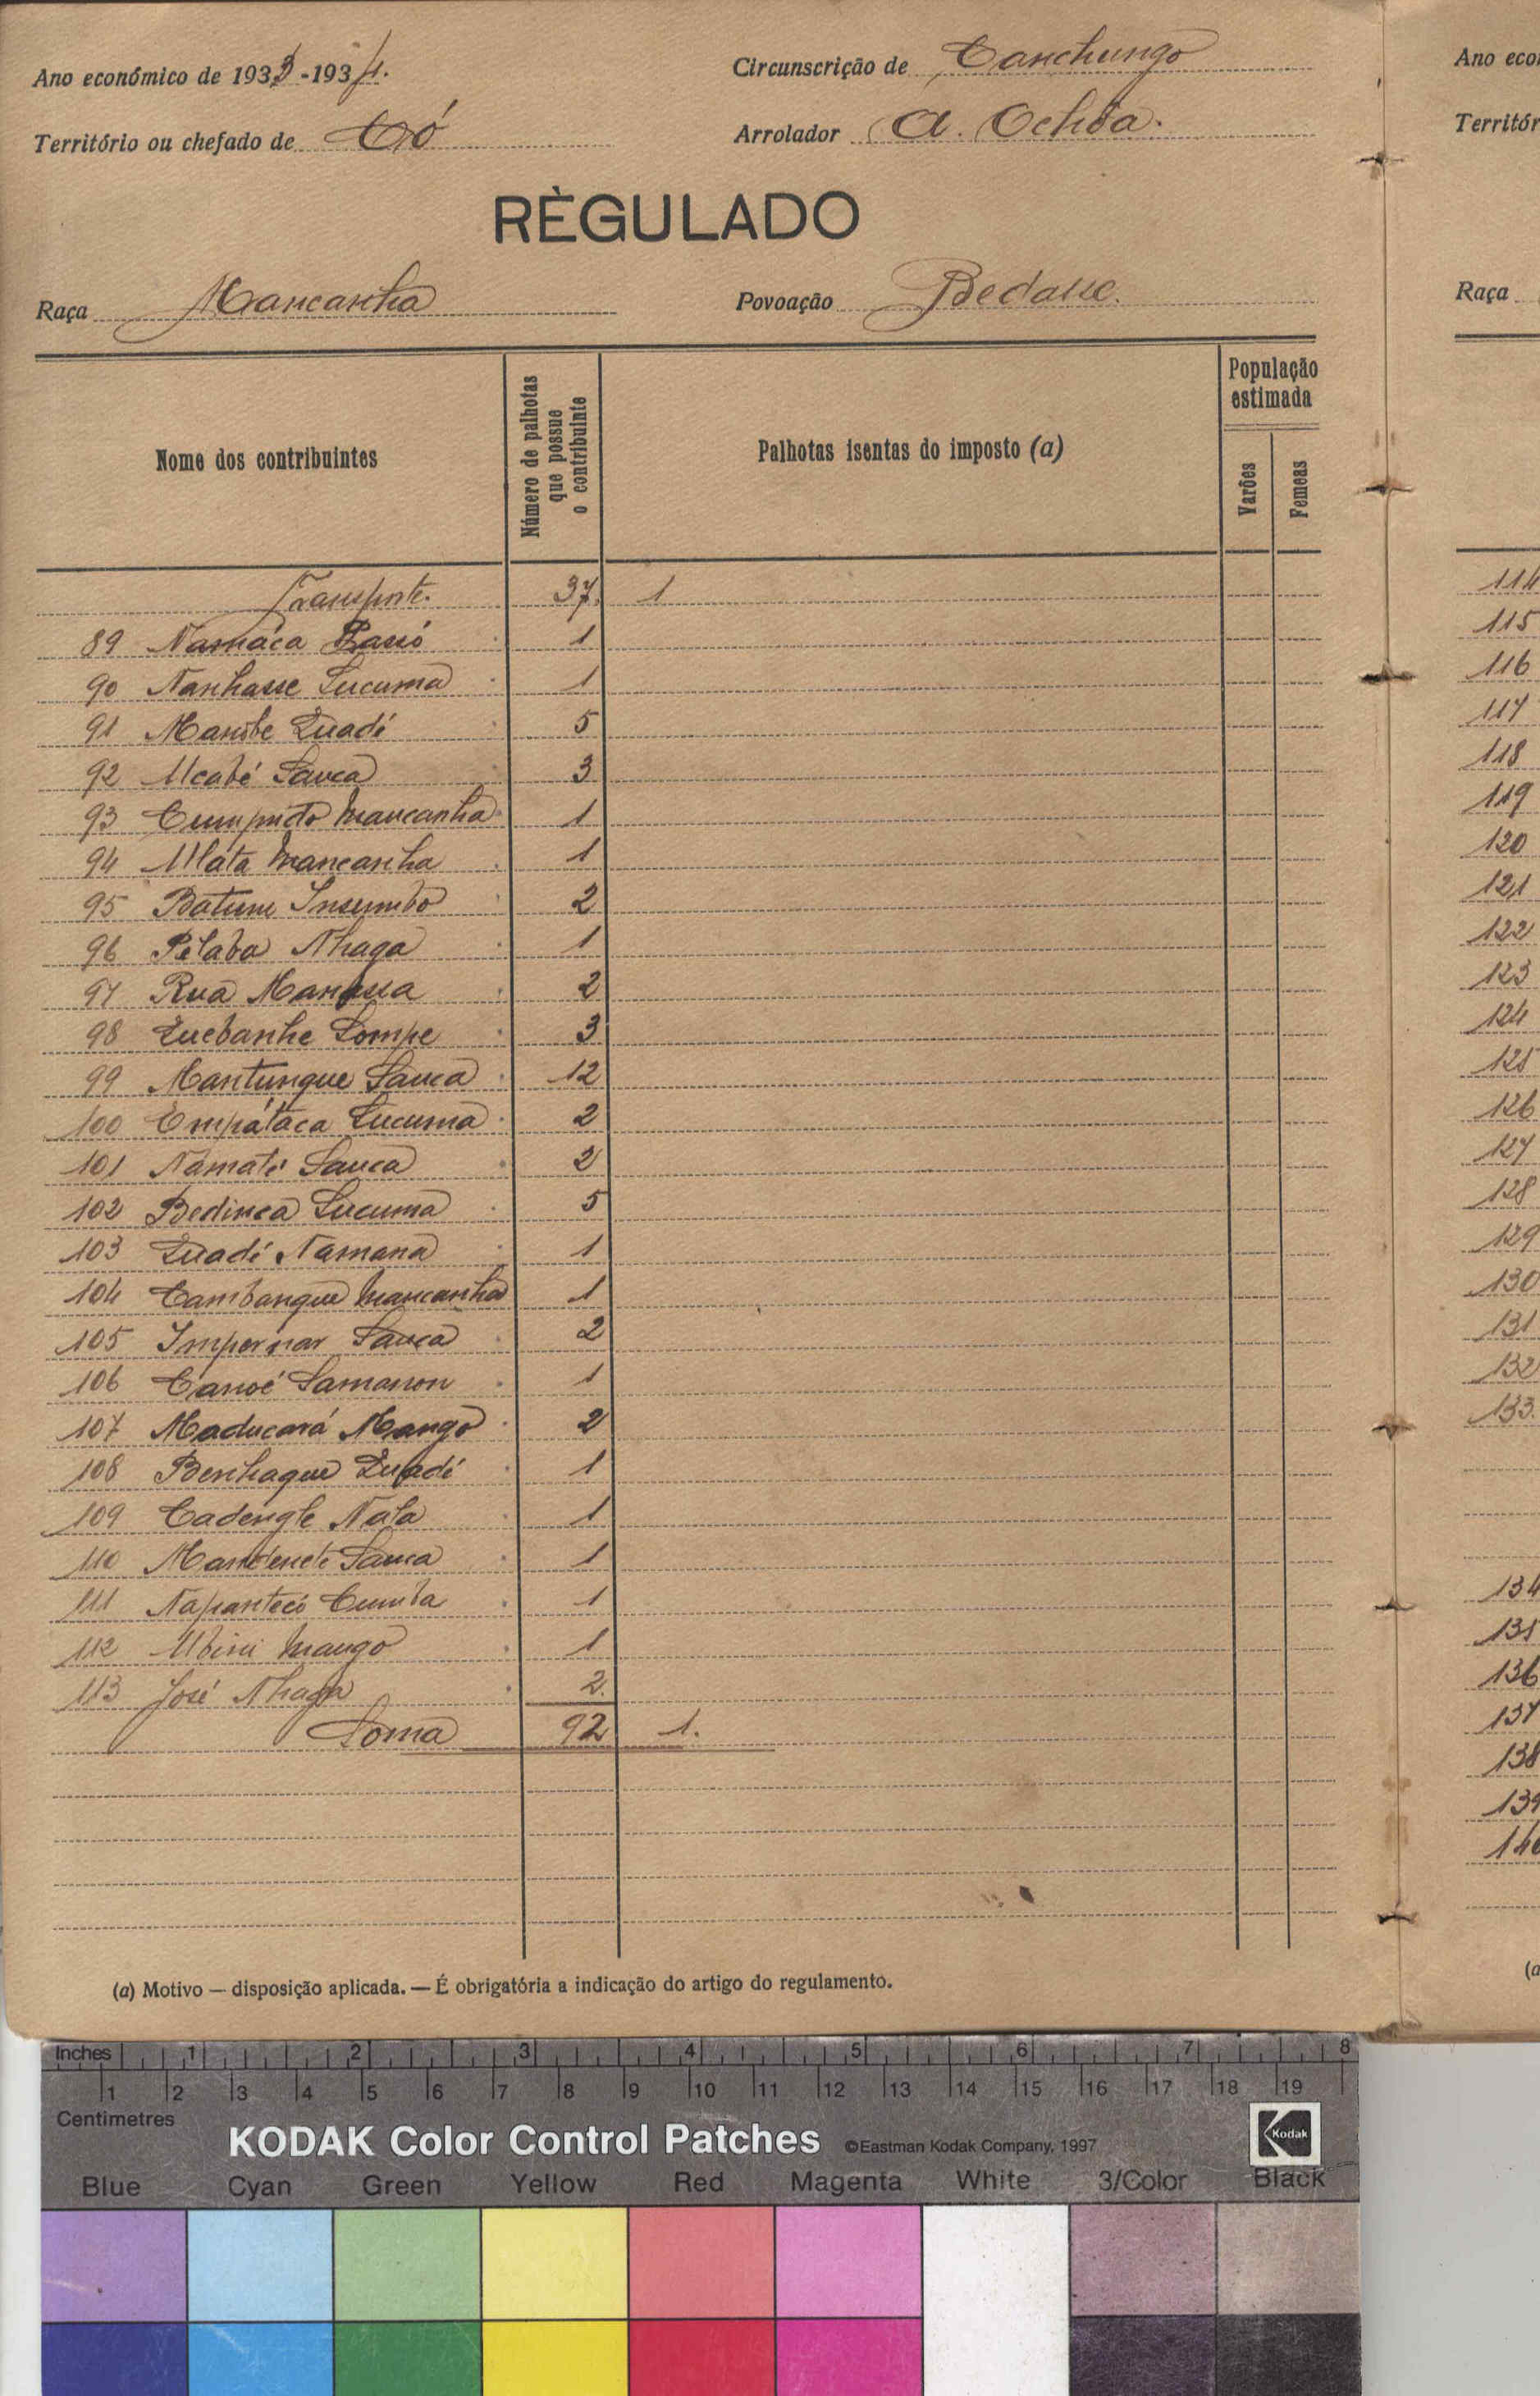 Ano económico de 1933-1934.
Circunscrição de Canchungo
Território ou chefado de Có
Arrolador A. Ochôa.
RÈGULADO
Raça Mancanha
Povoação Bedane.
Nome dos contribuintes
Número de palhotas que possue o contribuinte
Palhotas isentas do imposto (a)
População estimada
Varões
Femeas
Transporte. 37. 1
89 Namáca 1
90 Nanhasse Lucuma 1
91 Manobe Luadi 5
92 Ucabé Sanca 3
93 Cumprido Mancanha 1
94 Ulata Mancanha 1
95 Batum Insumbo 2
96 Pelaba Nhaga 1
97 Rua 2
98 Luebanhe Lompe 3
99 Mantungue Sanca 12
100 Empátaca Lucuma 2
101 Namaté Sanca 2
102 Bedinca Lucuma 5
103 Luadi Namana 1
104 Cambangue Mancanha 1
105 Impernar Sanca 2
106 Canoé Samanon 1
107 Maducará Mango 2
108 Benhaque Luadi 1
109 Cadengle Nala 1
110 Sanca 1
111 Napantecó Cumba 1
112 Ubini Mango 1
113 José Nhaga 2.
Soma 92 1.
(a) Motivo — disposição aplicada. — É obrigatória a indicação do artigo do regulamento.
Ano eco
Territór
Raça
114
115
116
117
118
119
120
121
122
123
124
125
126
127
128
129
130
131
132
133.
134
135
136
137
138
139
140
(a
Inches 1 2 3 4 5 6 7 8
1 2 3 4 5 6 7 8 9 10 11 12 13 14 15 16 17 18 19
Centimetres
KODAK Color Control Patches ©Eastman Kodak Company, 1997
Kodak
Blue Cyan Green Yellow Red Magenta White 3/Color Black